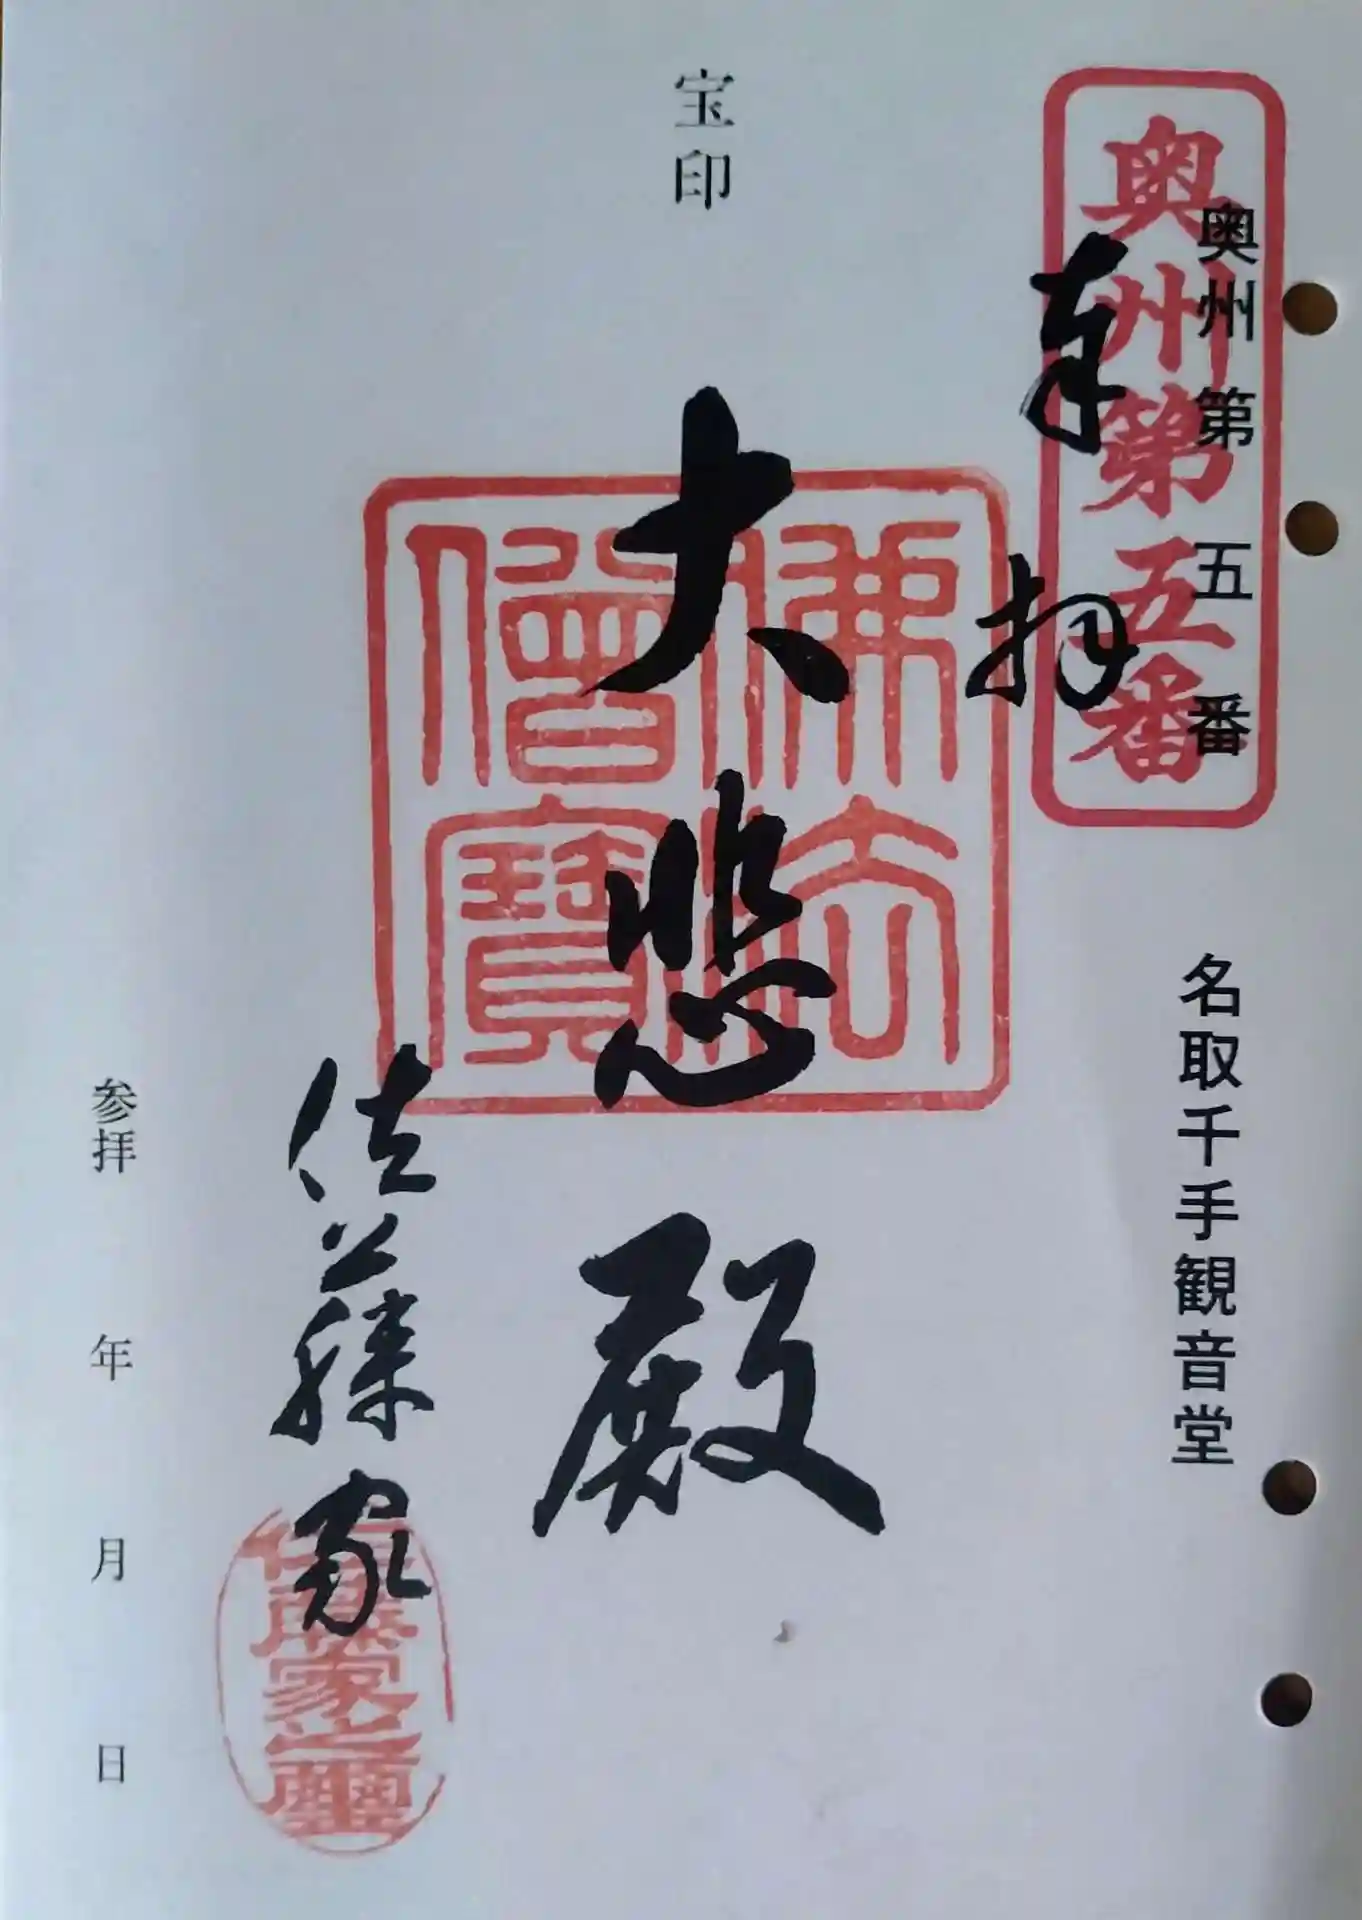 奥州第五番
名取千手観音堂
奥州第五番
奉拝
宝印
大悲殿
佛法僧寳
佐藤家
佐藤家之璽
参拝 年 月 日